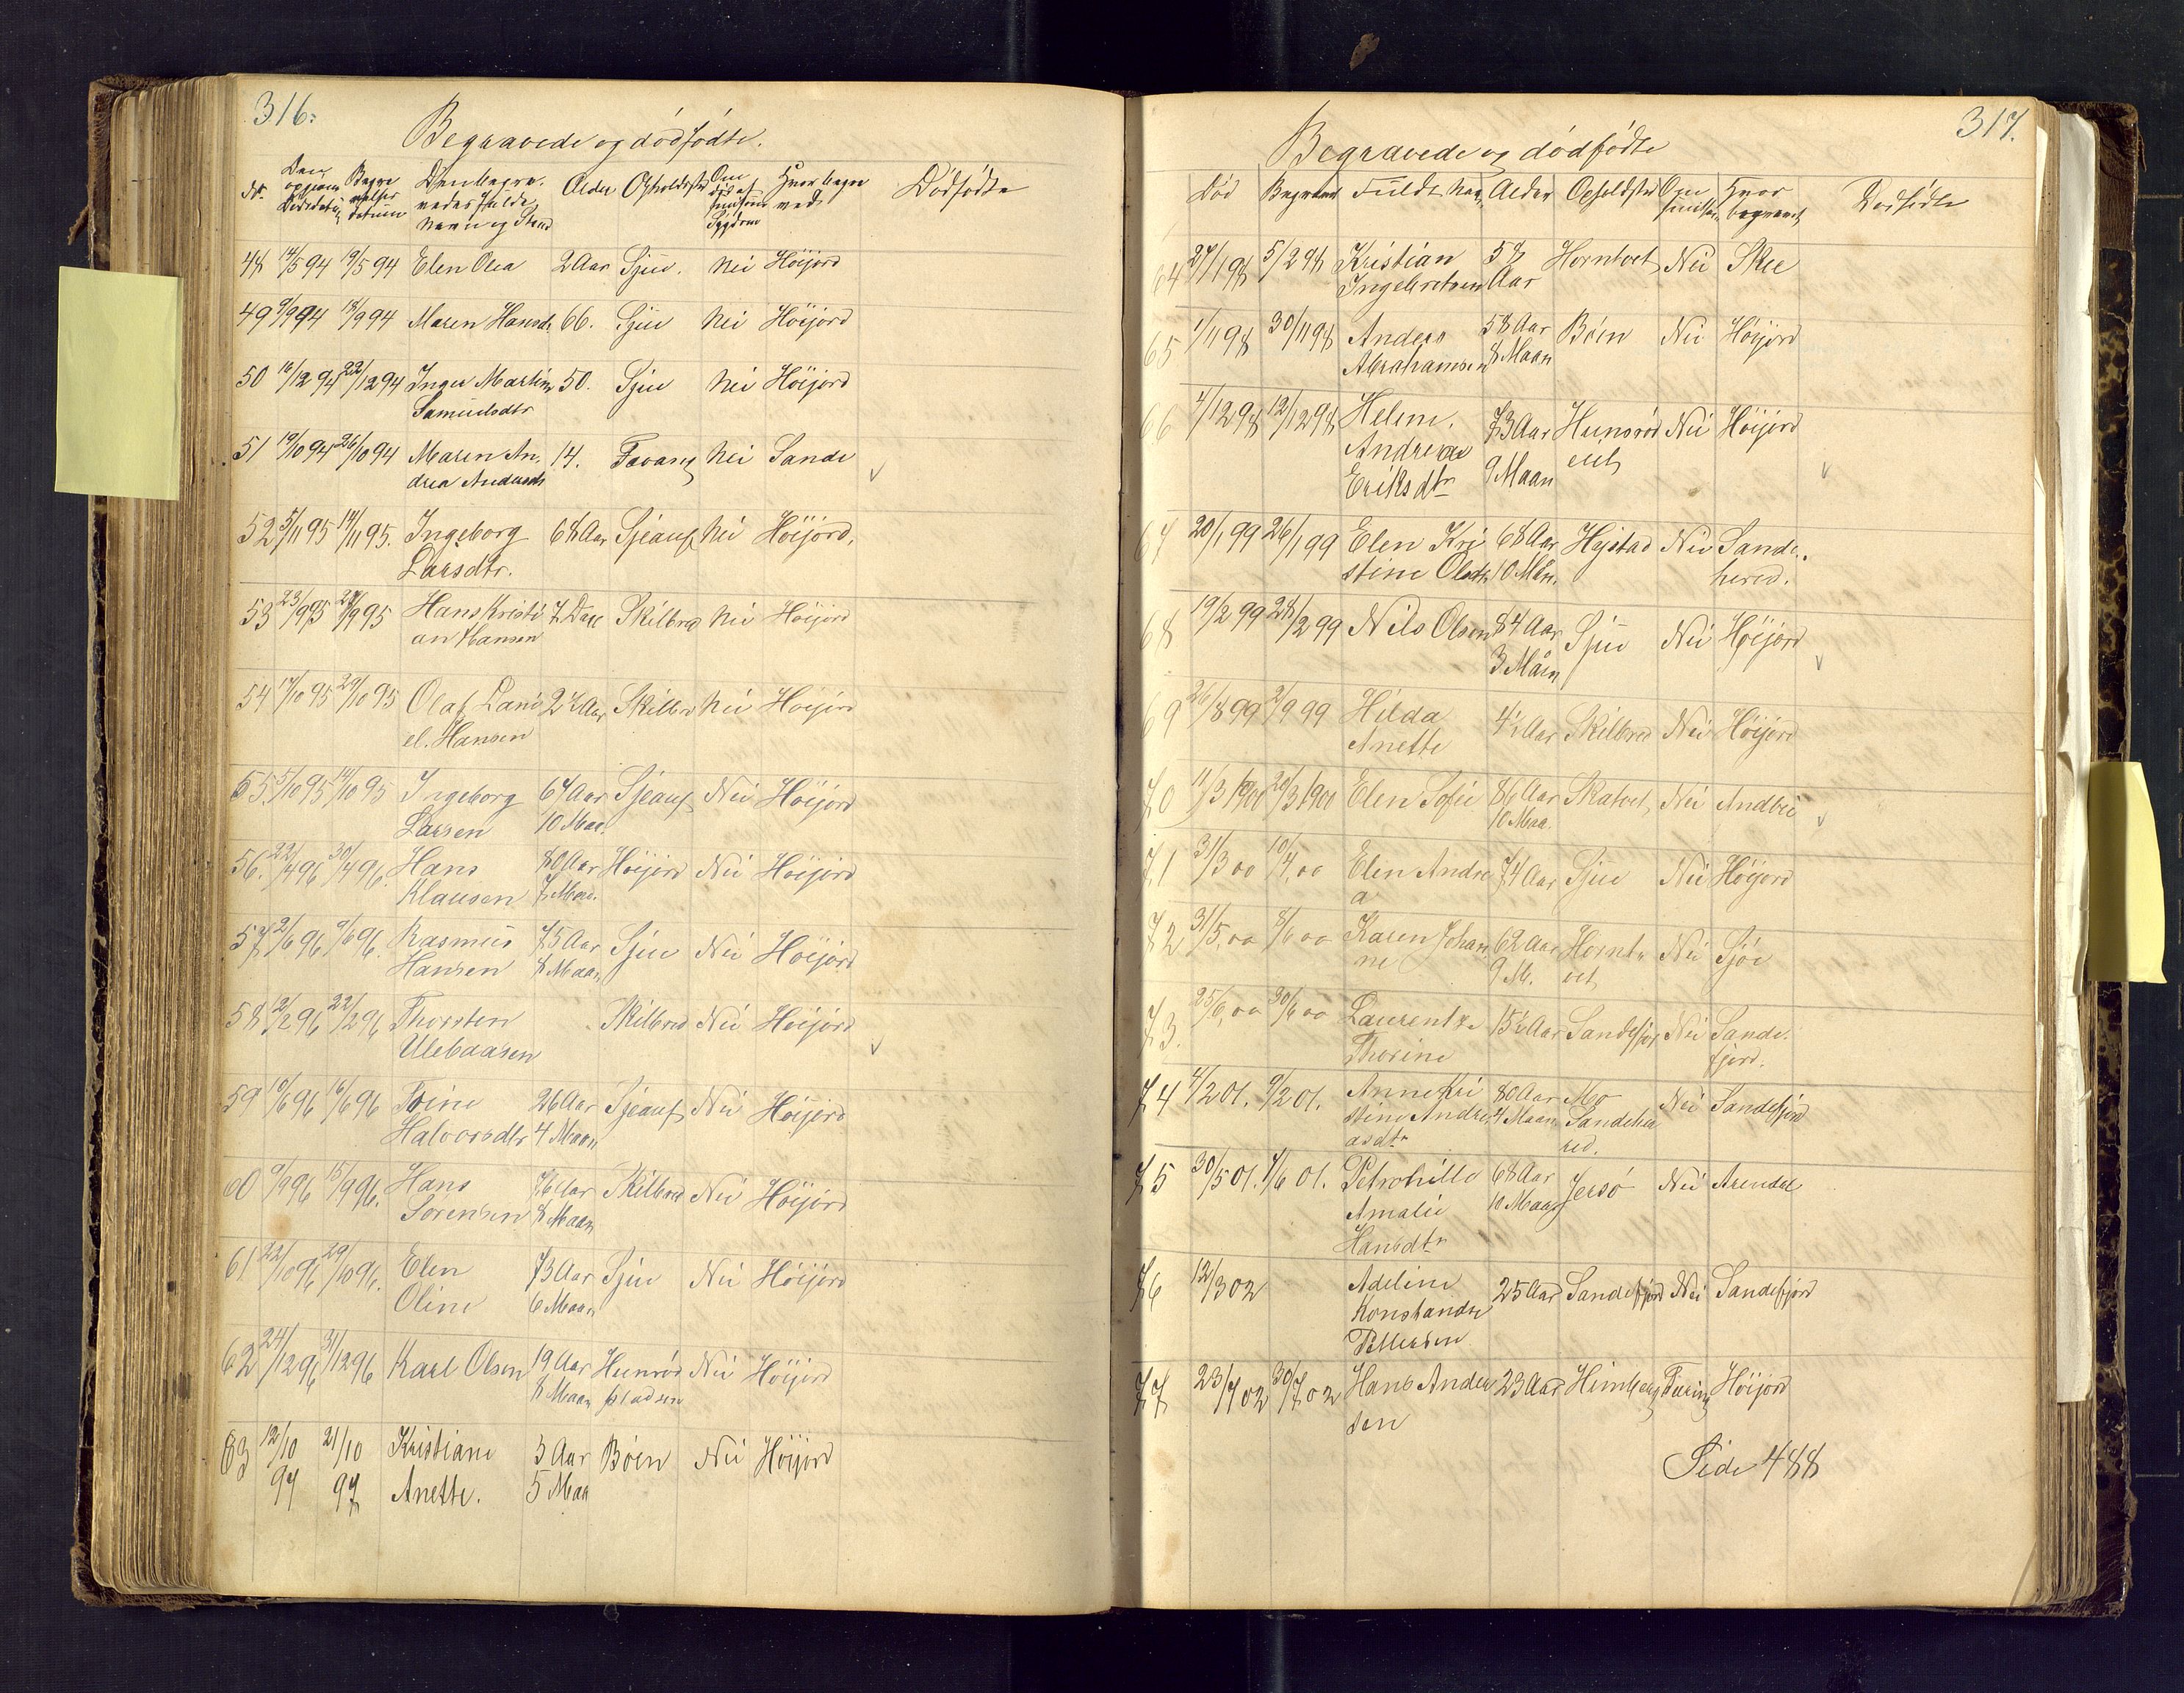 316.
Begravede og dödfödte.
Nr. Den opgivne Dödsdato Begravelses datum Den begravedes fulde Navn og Stand Alder Opholdssted Hvor begraved Dödfödte
48 14/5 94 19/5 94 Elen Olea 2 Aar Sjue. Nei Höijord
49 9/9 94 18/9 94 Maren Hansd. 66. Sjue Nei Höijord
50 16/12 94 22/12 94 Inger Martine 50. Sjue Nei Höijord
Samuelsdtr
51 19/10 94 26/10 94 Maren An- 14. Nei Sande
drea Andersdt
52 5/11 95 14/11 95. Ingeborg 68 Aar Sjeauf Nei Höijord.
Larsdtr.
53 23/9 95 28/9 95 Hans Kristi 7 Dage Skilbred Nei Höijord
an Hansen
54 17/10 95 29/10 95 Olaf Dani 2½ Aar Skilbre Nei Höijord
el. Hansen
55. 5/10 95 14/10 95 Ingeborg 67 Aar Sjeauf Nei Höijord
Larsen 10 Maa.
56. 22/4 96 30/4 96. Hans 80 Aar Höijord Nei Höijord
Klausen 7 Maa.
57 2/6 96 9/6 96. Rasmus 75 Aar Sjue Nei Höijord
Hansen 8 Maan
58 12/2 96 22/2 96 Thorsten Skilbred Nei Höijord
Ulebaasen
59 10/6 96 16/6 96 Trine 26 Aar Sjeauf Nei Höijord
Halvorsdtr 4 Maan
60 9/9 96 15/9 96. Hans 76 Aar Skilbred Nei Höijord
Sörensen 8 Maan
61 22/10 96 29/10 96. Elen 73 Aar Sjue Nei Höijord
Oline 6 Maan
62 24/12 96 31/12 96 Karl Olsen 19 Aar Hunröd Nei Höijord
8 Maan pladsen
63 12/10 21/10 Kristiane 3 Aar Böen Nei Höijord
97 97 Anette. 5 Maa
317.
Begravede og dödfödte
Död Begravet Fulde Navn Alder Opholdsted Om smitsom Hvor begravet Dödfödte
64 27/1 98 5/2 98 Kristian 57 Horntvet Nei Skee
Ingebretsen Aar
65 1/11 98 30/11 98 Anders 58 Aar Böen Nei Höijord
Abrahamsen 8 Maan
66 4/12 98 12/12 98 Helene 73 Aar Hunsröd Nei Höijord
Andrea 9 Maan eiet
Eriksdtr
67 20/1 99 26/1 99 Elen Kri 68 Aar Hystad Nei Sande-
stine Olsdtr 10 Mån. hered.
68 19/2 99 28/2 99 Nils Olsen 84 Aar Sjue Nei Höijord
3 Mån
69 26/8 99 2/9 99 Hilda 4½ Aar Skilbred Nei Höijord
Anette
70 11/3 1900 20/3 1900 Elen Sofie 86 Aar Skatvet Nei Andbu
10 Maa.
71 31/3 00 10/4,00 Elen Andre 74 Aar Sjue Nei Höijord
a
72 31/5,00 8/6 00 Karen Johan 62 Aar Hornt- Nei Sjöe
ne 9 M. vet
73. 25/6,00 30/6 00 Laurentze 15½ Aar Sandefjor Nei Sande-
Thorine fjord.
74 4/2 01. 9/2 01. Anne Kri 80 Aar Mo Nei Sandefjord
stine Andre 4 Maan Sandehe
asdtr red.
75 30/5 01. 4/6 01. Petronille 68 Aar Jersö Nei Arendal
Amalie 10 Maan
Hansdtr
76 12/3 02 Adeline 25 Aar Sandefjord Nei Sandefjord
Konstandse
Pettersen
77 23/7 02 30/7 02 Hans Ander 23 Aar Himberg Tæring Höijord
sen
Side 488